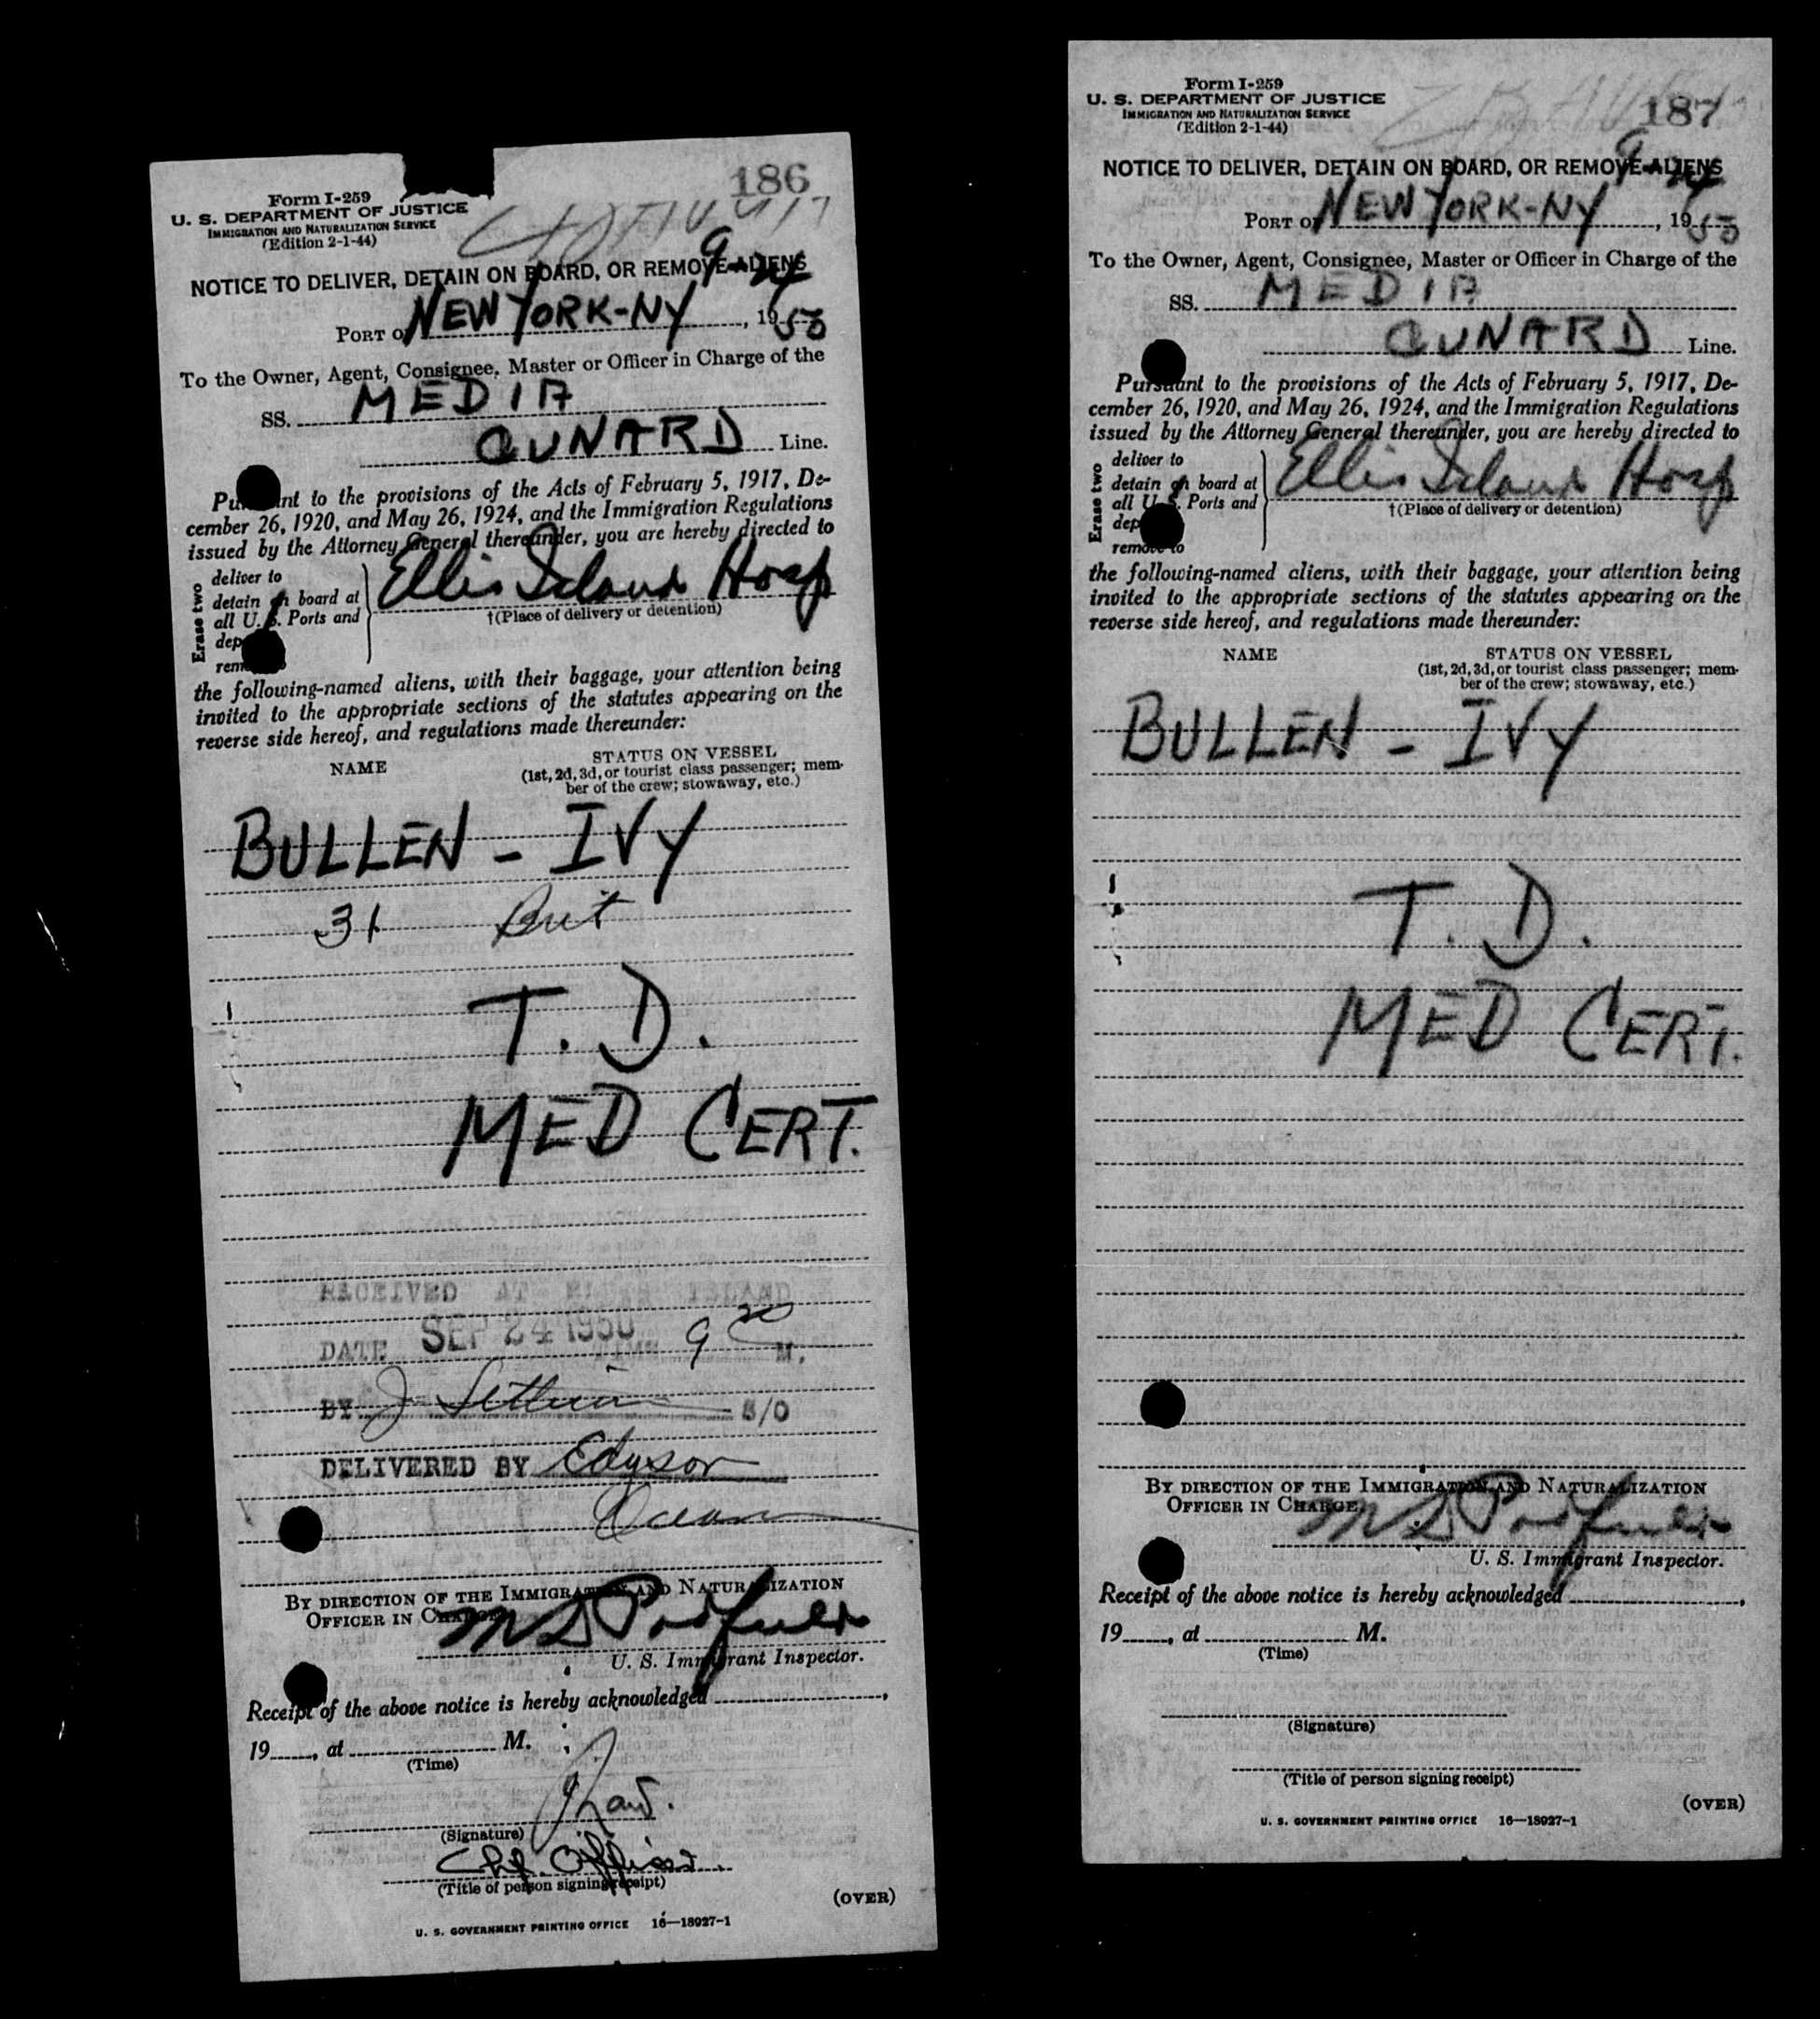 186
Form I-259
U. S. DEPARTMENT OF JUSTICE
IMMIGRATION AND NATURALIZATION SERVICE
(Edition 2-1-44)
NOTICE TO DELIVER, DETAIN ON BOARD, OR REMOVE ALIENS
9-24
PORT OF NEW YORK-NY, 1950
To the Owner, Agent, Consignee, Master or Officer in Charge of the
SS. MEDIA
CUNARD Line.
Pursuant to the provisions of the Acts of February 5, 1917, De-
cember 26, 1920, and May 26, 1924, and the Immigration Regulations
issued by the Attorney General thereunder, you are hereby directed to
Erase two
deliver to
detain on board at
all U. S. Ports and
dep
remove to
Ellis Island Hosp
†(Place of delivery or detention)
the following-named aliens, with their baggage, your attention being
invited to the appropriate sections of the statutes appearing on the
reverse side hereof, and regulations made thereunder:
NAME
STATUS ON VESSEL
(1st, 2d, 3d, or tourist class passenger; mem-
ber of the crew; stowaway, etc.)
BULLEN - IVY
31 Brit
T. D.
MED CERT.
RECEIVED AT ELLIS ISLAND
DATE SEP 24 1950 TIME 9 M.
BY J S/O
DELIVERED BY
Ocean
BY DIRECTION OF THE IMMIGRATION AND NATURALIZATION
OFFICER IN CHARGE
U. S. Immigrant Inspector.
Receipt of the above notice is hereby acknowledged
19, at M.
(Time)
(Signature)
Chf. Officer.
(Title of person signing receipt)
(OVER)
U. S. GOVERNMENT PRINTING OFFICE 16—18927-1
187
Form I-259
U. S. DEPARTMENT OF JUSTICE
IMMIGRATION AND NATURALIZATION SERVICE
(Edition 2-1-44)
NOTICE TO DELIVER, DETAIN ON BOARD, OR REMOVE ALIENS
9-24
PORT OF NEW YORK-NY, 1950
To the Owner, Agent, Consignee, Master or Officer in Charge of the
SS. MEDIA
CUNARD Line.
Pursuant to the provisions of the Acts of February 5, 1917, De-
cember 26, 1920, and May 26, 1924, and the Immigration Regulations
issued by the Attorney General thereunder, you are hereby directed to
Erase two
deliver to
detain on board at
all U. S. Ports and
dep
remove to
Ellis Island Hosp
†(Place of delivery or detention)
the following-named aliens, with their baggage, your attention being
invited to the appropriate sections of the statutes appearing on the
reverse side hereof, and regulations made thereunder:
NAME
STATUS ON VESSEL
(1st, 2d, 3d, or tourist class passenger; mem-
ber of the crew; stowaway, etc.)
BULLEN - IVY
T. D.
MED CERT.
BY DIRECTION OF THE IMMIGRATION AND NATURALIZATION
OFFICER IN CHARGE
U. S. Immigrant Inspector.
Receipt of the above notice is hereby acknowledged,
19, at M.
(Time)
(Signature)
(Title of person signing receipt)
(OVER)
U. S. GOVERNMENT PRINTING OFFICE 16—18927-1